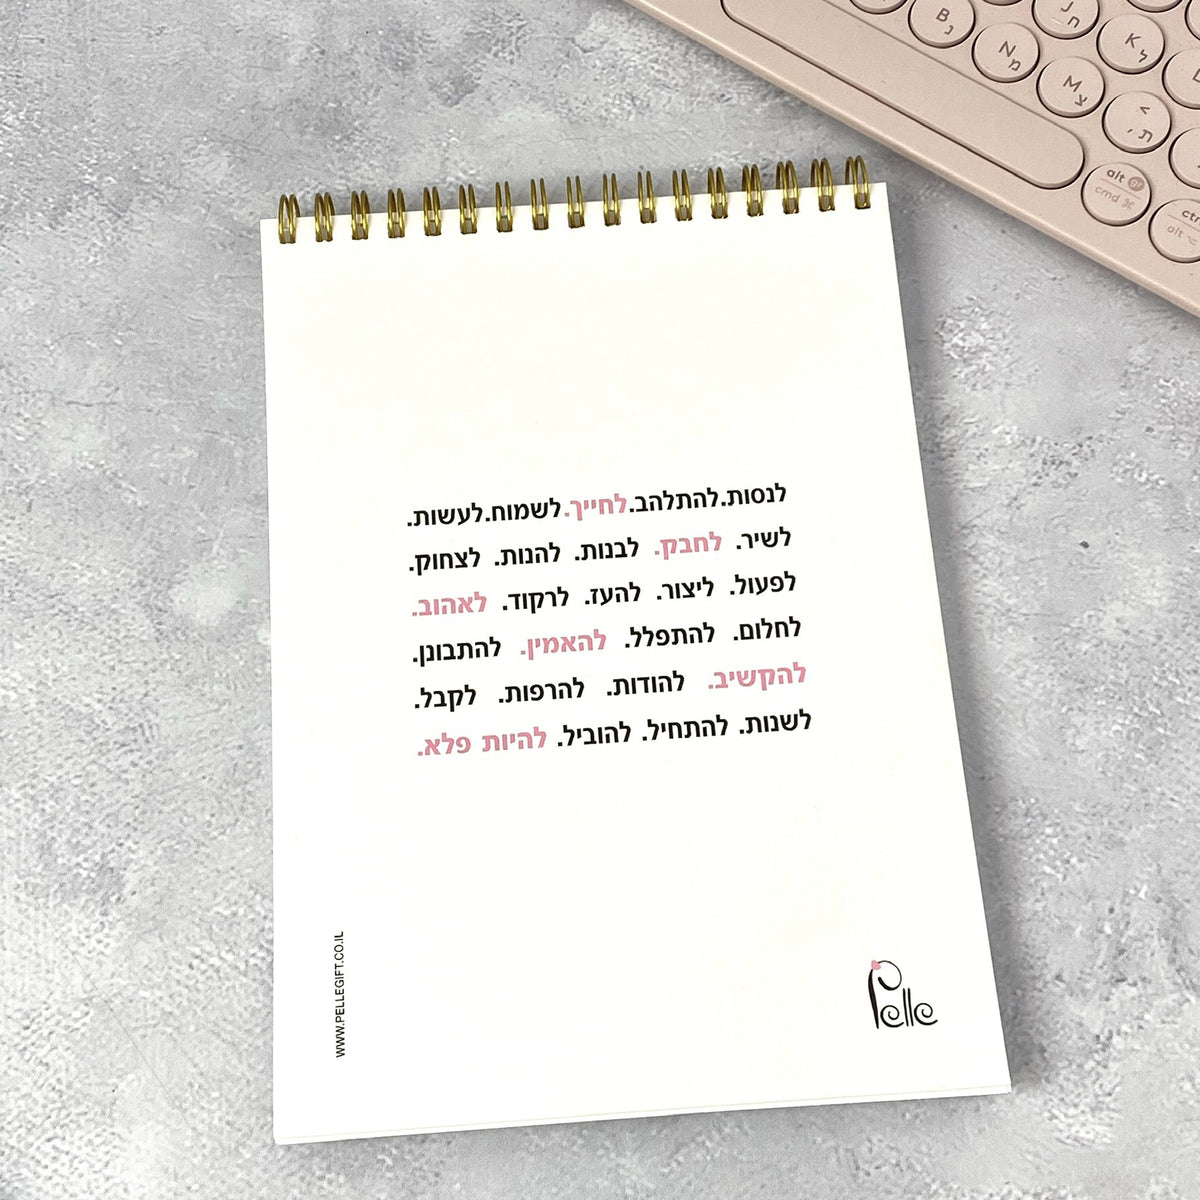 לנסות.להתלהב.לחייך.לשמוח.לעשות.
לשיר. לחבק. לבנות. להנות. לצחוק.
לפעול. ליצור. להעז. לרקוד. לאהוב.
לחלום. להתפלל. להאמין. להתבונן.
להקשיב. להודות. להרפות. לקבל.
לשנות. להתחיל. להוביל. להיות פלא.
WWW.PELLEGIFT.CO.IL
Pelle
B נ
N מ
J ח
M צ
K ל
< ת ,
alt gr
cmd ⌘
ctr
alt